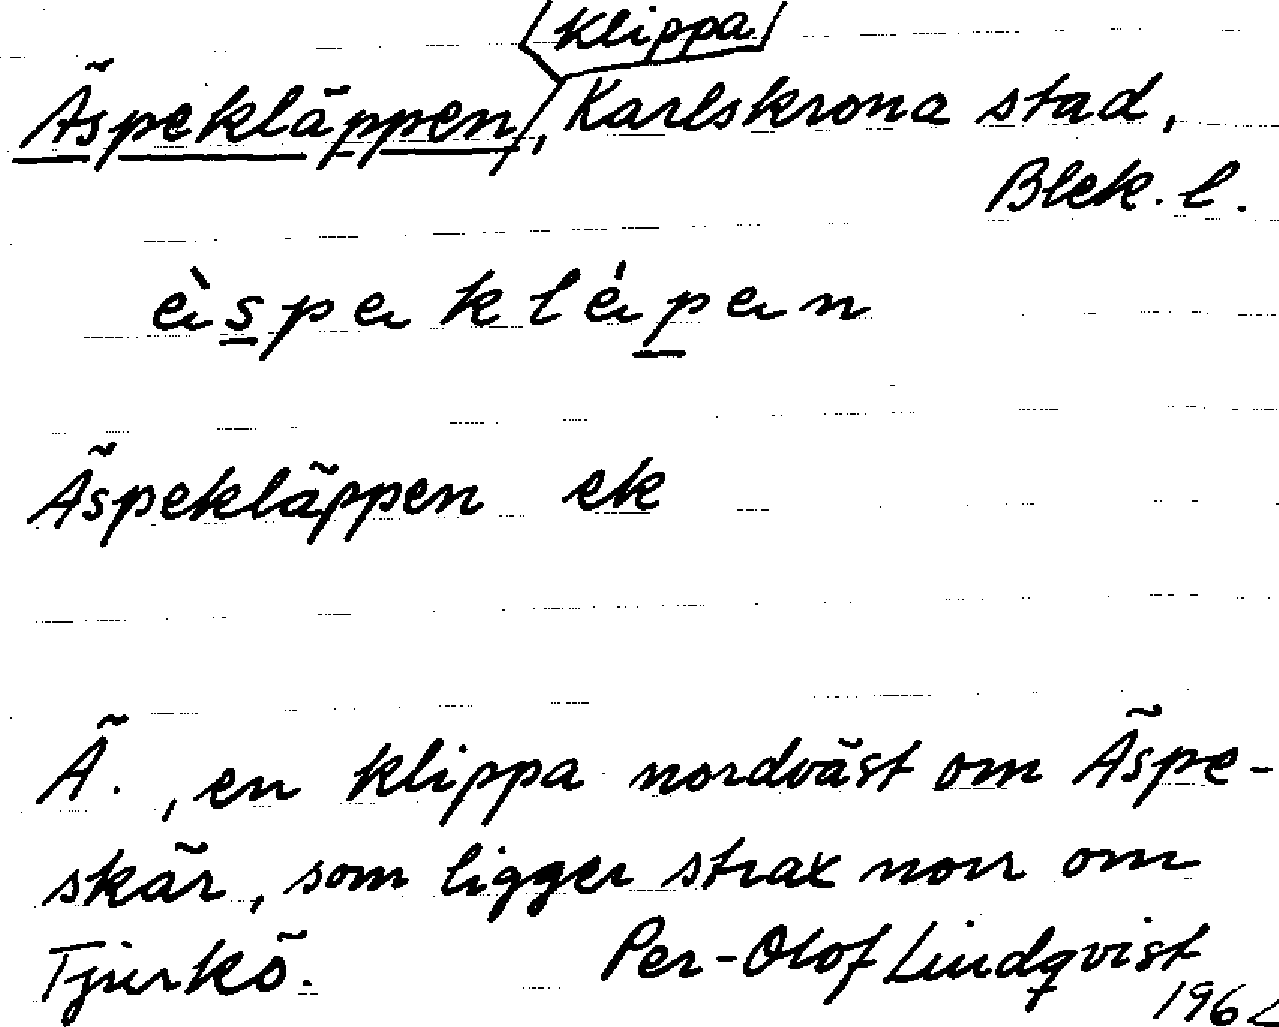 klippa
Äspekläppen, Karlskrona stad,
Blek. l.
Äspekläppen ek
Ä., en klippa nordväst om Äspe-
skär, som ligger strax norr om
Tjurkö. Per-Olof Lindqvist